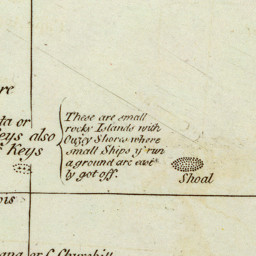 re
ta or
eys also
Keys
These are small
rocks Islands with
Ouzey Shores where
small Ships yt run
a ground are easi
ly got off.
Shoal
ois
or C. Churchill